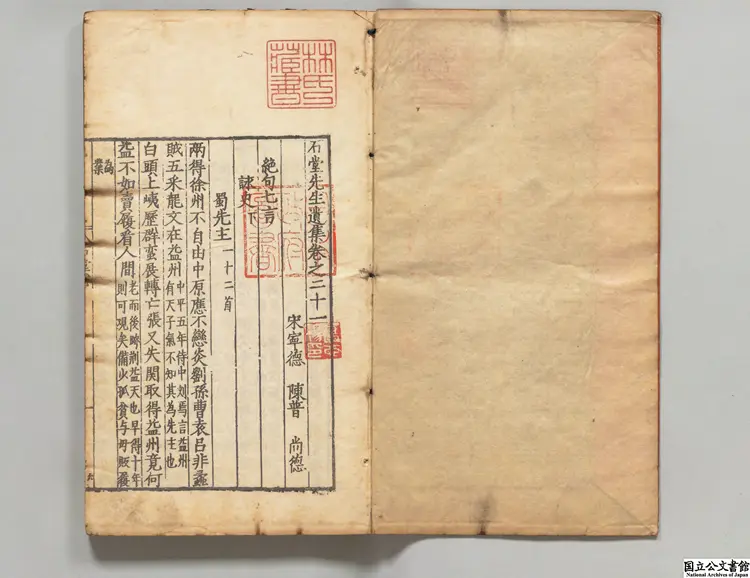 林氏藏書
石堂先生遺集卷之二十一
宋寧德 陳普 尚德
絕句七言
詠史下
蜀先主一十二首
兩得徐州不自由中原應不戀炎劉孫曹袁吕非蟊
賊五采龍文在益州
中平五年侍中刘焉言益州
有天子氣不知其為先主也
白頭上峽歷群蠻展轉亡張又失関取得益州竟何
益不如賣履看人間
老而後跨荆益天也早得十年
則可現矣備少孤貧与母販履
為
業
国立公文書館
National Archives of Japan